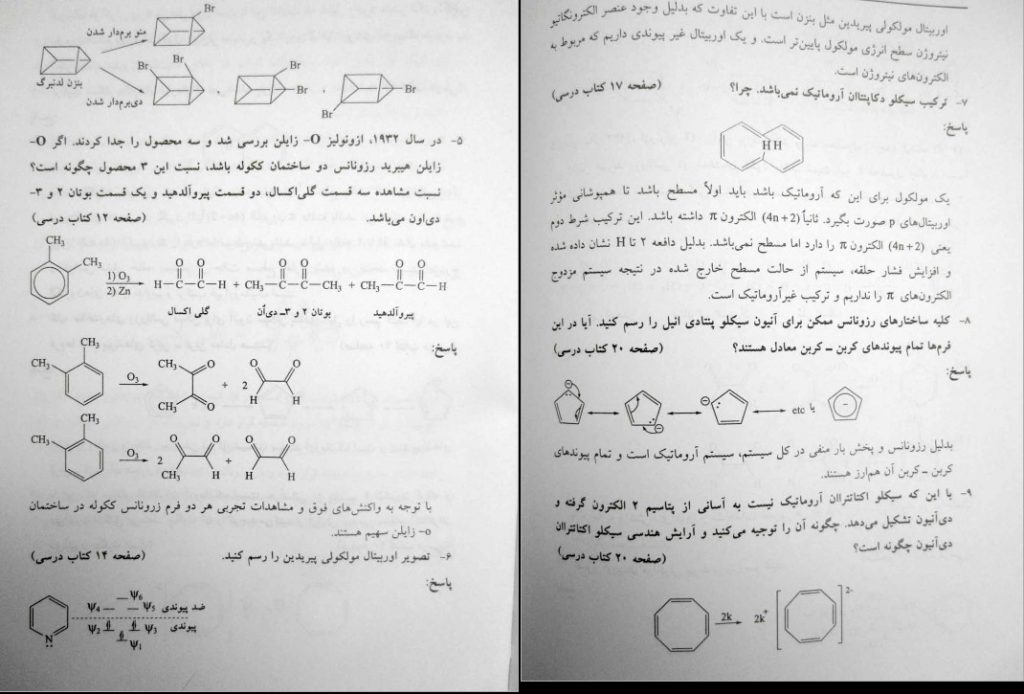 Br
منو برم‌دار شدن
بنزن لدنبرگ
دی‌برم‌دار شدن
Br
Br
Br
Br
Br
Br
۵- در سال ۱۹۳۲، ازونولیز O- زایلن بررسی شد و سه محصول را جدا کردند. اگر O-
زایلن هیبرید رزونانس دو ساختمان ککوله باشد، نسبت این ۳ محصول چگونه است؟
نسبت مشاهده سه قسمت گلی‌اکسال، دو قسمت پیروآلدهید و یک قسمت بوتان ۲ و ۳-
دی‌اون می‌باشد. (صفحه ۱۲ کتاب درسی)
CH₃
CH₃
1) O₃
2) Zn
O O O O O O
H — C — C — H + CH₃ — C — C — CH₃ + CH₃ — C — C — H
گلی اکسال بوتان ۲ و ۳ــ دی‌اُن پیروآلدهید
پاسخ:
CH₃
CH₃
O₃
CH₃ O
CH₃ O
+ 2
O O
H H
CH₃
CH₃
O₃
2
O O
CH₃ H
+
O O
H H
با توجه به واکنش‌های فوق و مشاهدات تجربی هر دو فرم رزونانس ککوله در ساختمان
o- زایلن سهیم هستند.
۶- تصویر اوربیتال مولکولی پیریدین را رسم کنید. (صفحه ۱۴ کتاب درسی)
پاسخ:
N
ψ₆
ψ₄ ψ₅ ضد پیوندی
ψ₂ ψ₃ پیوندی
ψ₁
اوربیتال مولکولی پیریدین مثل بنزن است با این تفاوت که بدلیل وجود عنصر الکترونگاتیو
نیتروژن سطح انرژی مولکول پایین‌تر است. و یک اوربیتال غیر پیوندی داریم که مربوط به
الکترون‌های نیتروژن است.
۷- ترکیب سیکلو دکاپنتاان آروماتیک نمی‌باشد. چرا؟ (صفحه ۱۷ کتاب درسی)
پاسخ:
H H
یک مولکول برای این که آروماتیک باشد باید اولاً مسطح باشد تا همپوشانی مؤثر
اوربیتال‌های p صورت بگیرد. ثانیاً (4n+2) الکترون π داشته باشد. این ترکیب شرط دوم
یعنی (4n+2) الکترون π را دارد اما مسطح نمی‌باشد. بدلیل دافعه ۲ تا H نشان داده شده
و افزایش فشار حلقه، سیستم از حالت مسطح خارج شده در نتیجه سیستم مزدوج
الکترون‌های π را نداریم و ترکیب غیرآروماتیک است.
۸- کلیه ساختارهای رزونانس ممکن برای آنیون سیکلو پنتادی انیل را رسم کنید. آیا در این
فرم‌ها تمام پیوندهای کربن ــ کربن معادل هستند؟ (صفحه ۲۰ کتاب درسی)
پاسخ:
etc یا
بدلیل رزونانس و پخش بار منفی در کل سیستم، سیستم آروماتیک است و تمام پیوندهای
کربن ــ کربن آن هم‌ارز هستند.
۹- با این که سیکلو اکتاتتراان آروماتیک نیست به آسانی از پتاسیم ۲ الکترون گرفته و
دی‌آنیون تشکیل می‌دهد. چگونه آن را توجیه می‌کنید و آرایش هندسی سیکلو اکتاتتراان
دی‌آنیون چگونه است؟ (صفحه ۲۰ کتاب درسی)
2k 2k⁺ 2-